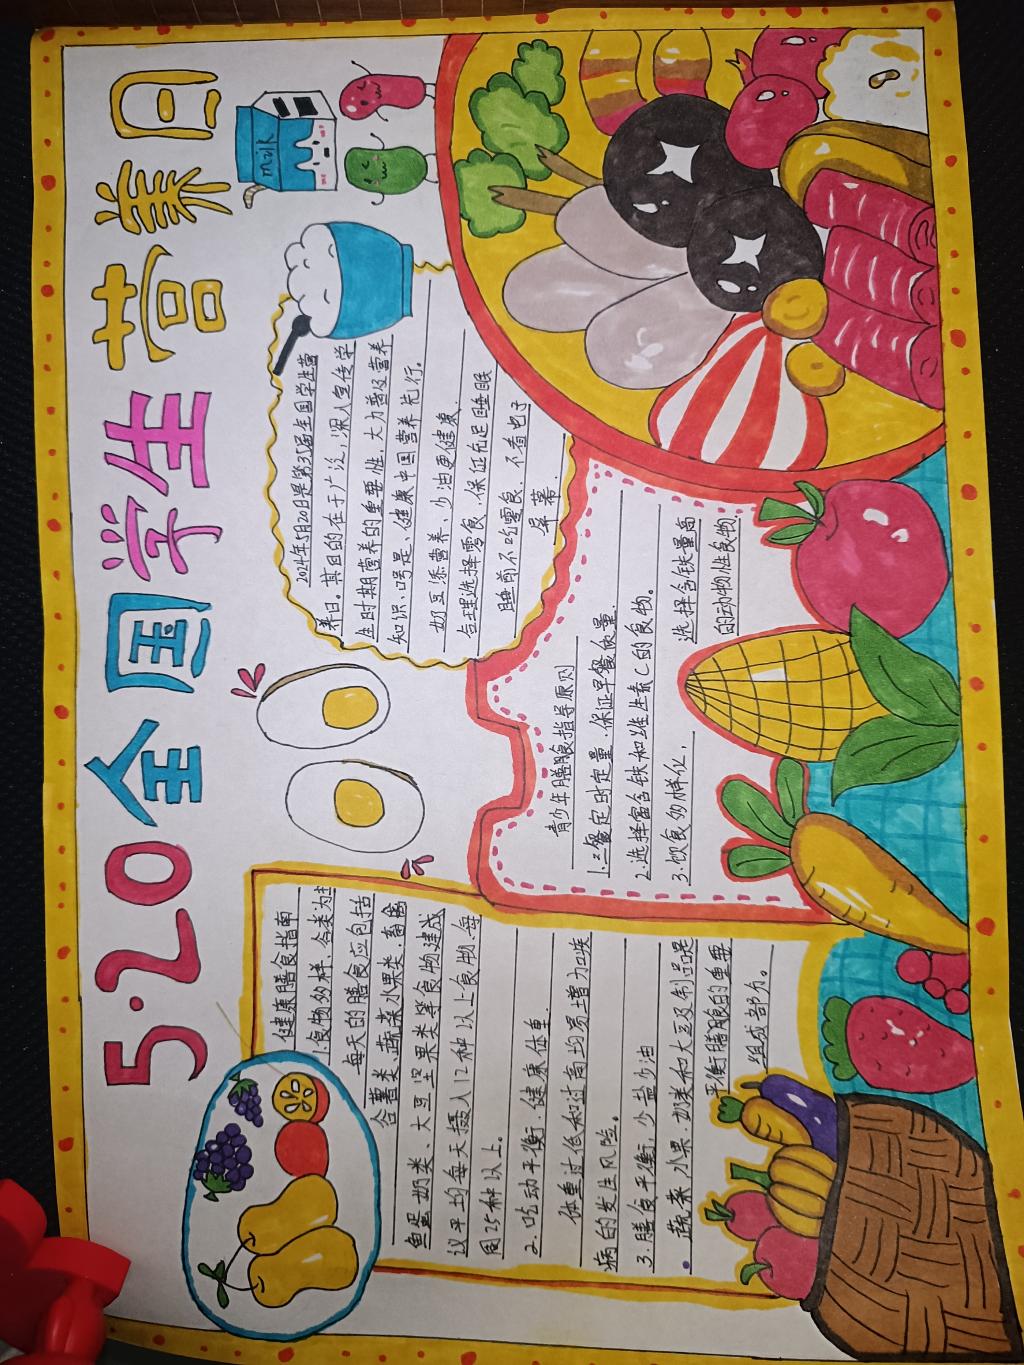 5·20全国学生营养日
milk
健康膳食指南
1.食物多样、谷类为主
每天的膳食应包括
谷薯类、蔬菜水果类、畜禽
鱼蛋奶类、大豆坚果类等食物建成
议平均每天摄入12种以上食物,每
周25种以上。
2.吃动平衡,健康体重.
体重过低和过高均易增加疾
病的发生风险。
3.膳食平衡,少盐少油
蔬菜、水果、奶类和大豆及制品是
平衡膳食的重要
组成部分。
2024年5月20日是第35届全国学生营
养日。其目的在于广泛,深入宣传学
生时期营养的重要性,大力普及营养
知识.口号是、健康中国营养先行.
奶豆添营养、少油更健康.
合理选择零食、保证充足睡眠
睡前不吃零食.不看电子
屏幕.
青少年膳食指导原则
1.三餐定时定量.保证早餐质量.
2.选择富含铁和维生素C的食物.
3.饮食多样化,
选择含铁量高
的动物性食物.